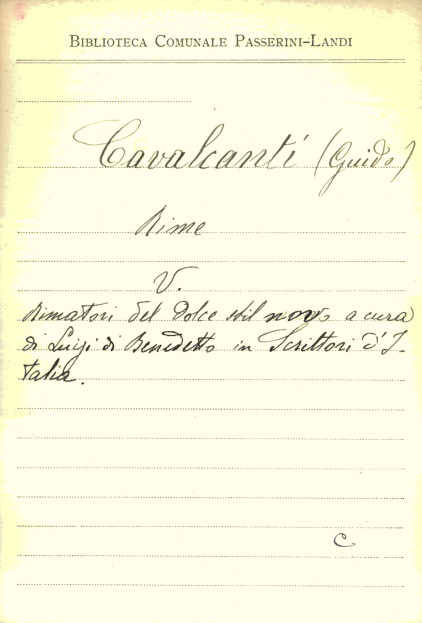 Biblioteca Comunale Passerini-Landi
Cavalcanti (Guido)
Rime
V.
Rimatori del Dolce stil novo a cura
di Luigi di Benedetto in Scrittori d'I-
talia.
C